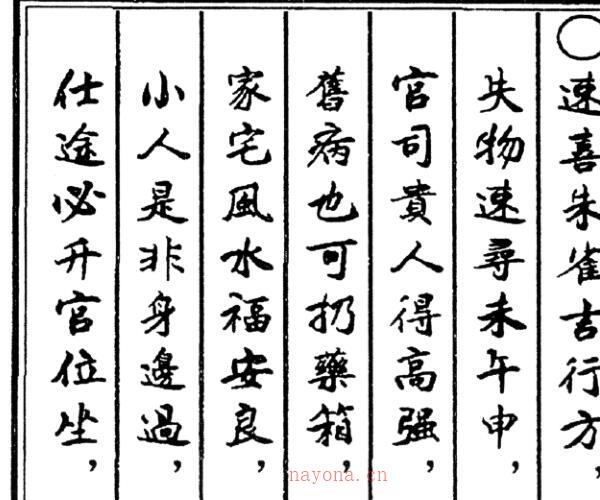 ○速喜朱雀吉行方，
失物速尋未午申，
官司貴人得高强，
舊病也可扔藥箱，
家宅風水福安良，
小人是非身邊過，
仕途必升官位坐，
nayona.cn